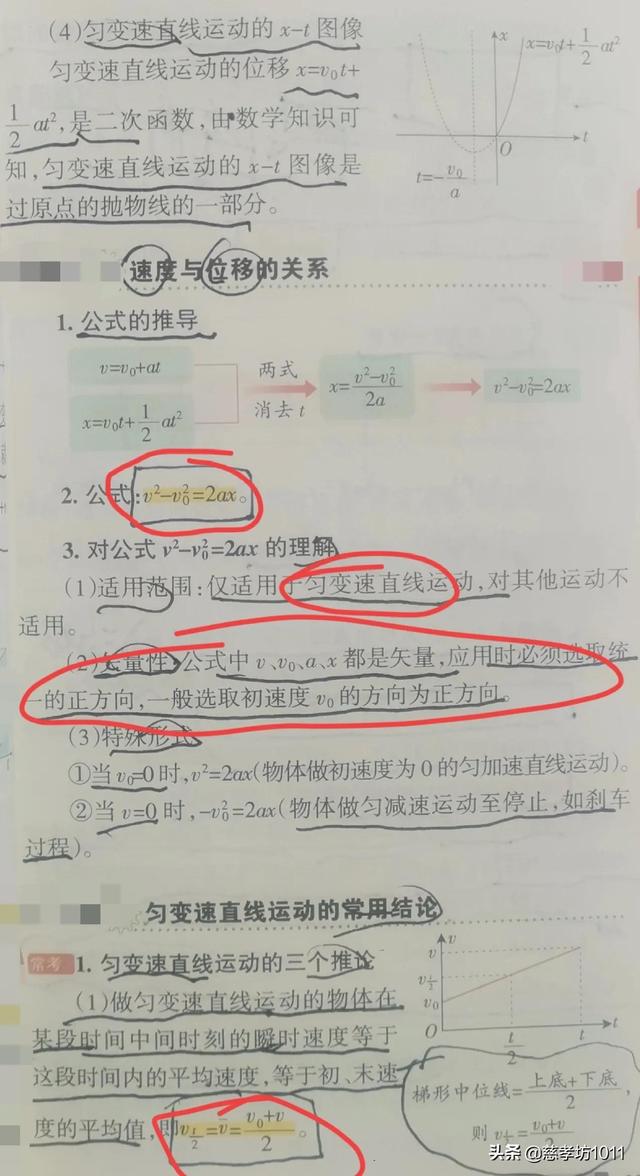 (4)匀变速直线运动的 x-t 图像
匀变速直线运动的位移 x=v₀t+
1/2 at²,是二次函数,由数学知识可
知,匀变速直线运动的 x-t 图像是
过原点的抛物线的一部分。
x
x=v₀t+1/2 at²
O
t
t=-v₀/a
速度与位移的关系
1. 公式的推导
v=v₀+at
x=v₀t+1/2 at²
两式
消去 t
x=(v²-v₀²)/2a
v²-v₀²=2ax
2. 公式:v²-v₀²=2ax。
3. 对公式 v²-v₀²=2ax 的理解
(1)适用范围:仅适用于匀变速直线运动,对其他运动不
适用。
(2)矢量性:公式中 v、v₀、a、x 都是矢量,应用时必须选取统
一的正方向,一般选取初速度 v₀ 的方向为正方向。
(3)特殊形式
①当 v₀=0 时,v²=2ax(物体做初速度为 0 的匀加速直线运动)。
②当 v=0 时,-v₀²=2ax(物体做匀减速运动至停止,如刹车
过程)。
匀变速直线运动的常用结论
常考 1. 匀变速直线运动的三个推论
(1)做匀变速直线运动的物体在
某段时间中间时刻的瞬时速度等于
这段时间内的平均速度,等于初、末速
度的平均值,即v_{t/2}=v̄=(v₀+v)/2。
v
v
v_{t/2}
v₀
O
t/2
t
t
梯形中位线=(上底+下底)/2,
则 v_{t/2}=(v₀+v)/2
头条 @慈孝坊1011